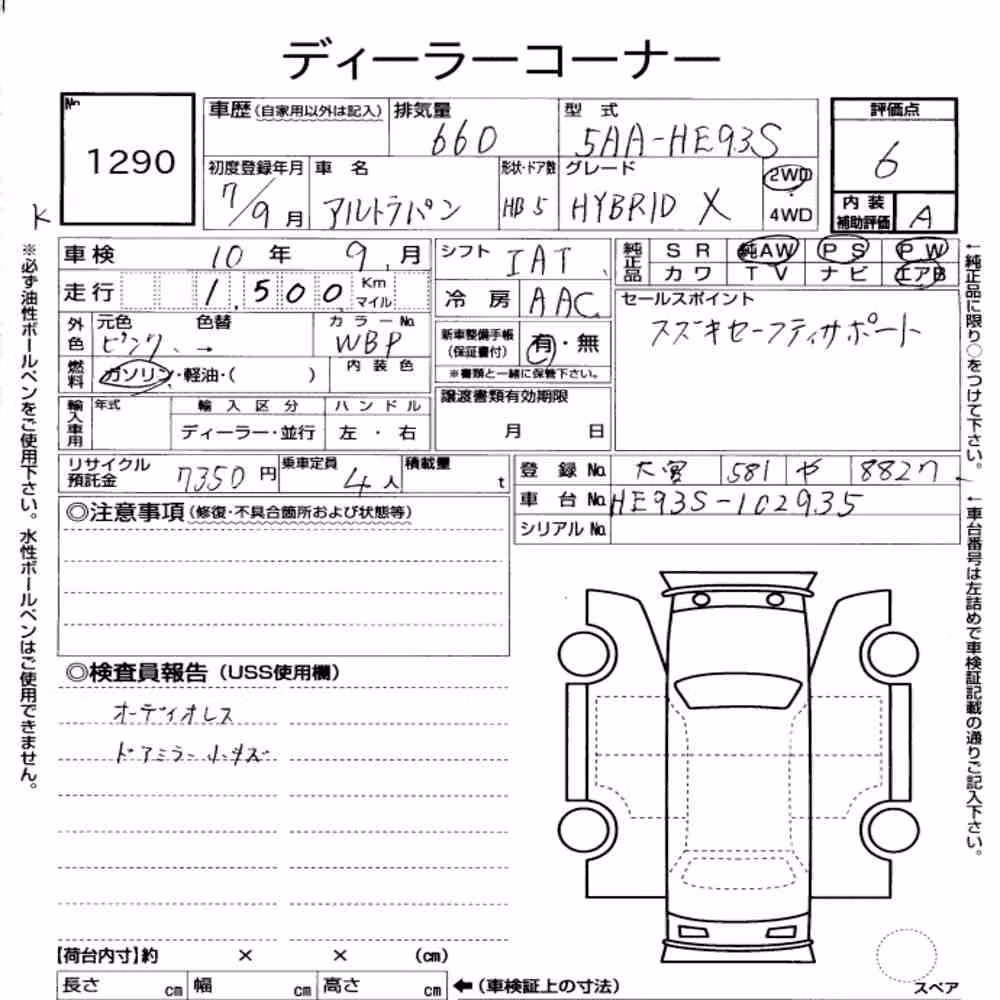 ディーラーコーナー
No 1290
K
車歴 (自家用以外は記入) 排気量 660 型式 5AA-HE93S
初度登録年月 7/9月 車名 アルトラパン 形状・ドア数 HB5 グレード HYBRID X 2WD・4WD
評価点 6
内装補助評価 A
車検 10年 9月 シフト IAT 純正品 SR 純AW PS PW
カワ TV ナビ エアB
走行 1,500 Km マイル 冷房 AAC
セールスポイント
スズキセーフティサポート
外色 元色 ピンク 色替 → カラーNo WBP
新車整備手帳(保証書付) 有・無
※書類と一緒に保管下さい。
燃料 ガソリン・軽油・( ) 内装色
譲渡書類有効期限
月 日
輸入車用 年式 輸入区分 ハンドル
ディーラー・並行 左・右
リサイクル預託金 7350円 乗車定員 4人 積載量 t
登録No 大宮 581 や 8827
車台No HE93S-102935
シリアルNo
◎注意事項(修復・不具合箇所および状態等)
◎検査員報告(USS使用欄)
オーディオレス
ドアミラー小キズ
【荷台内寸】約 × × (cm)
長さ cm 幅 cm 高さ cm ←(車検証上の寸法)
スペア
※必ず油性ボールペンをご使用下さい。水性ボールペンはご使用できません。
←純正品に限り○をつけて下さい。
←車台番号は左詰めで車検証記載の通りご記入下さい。